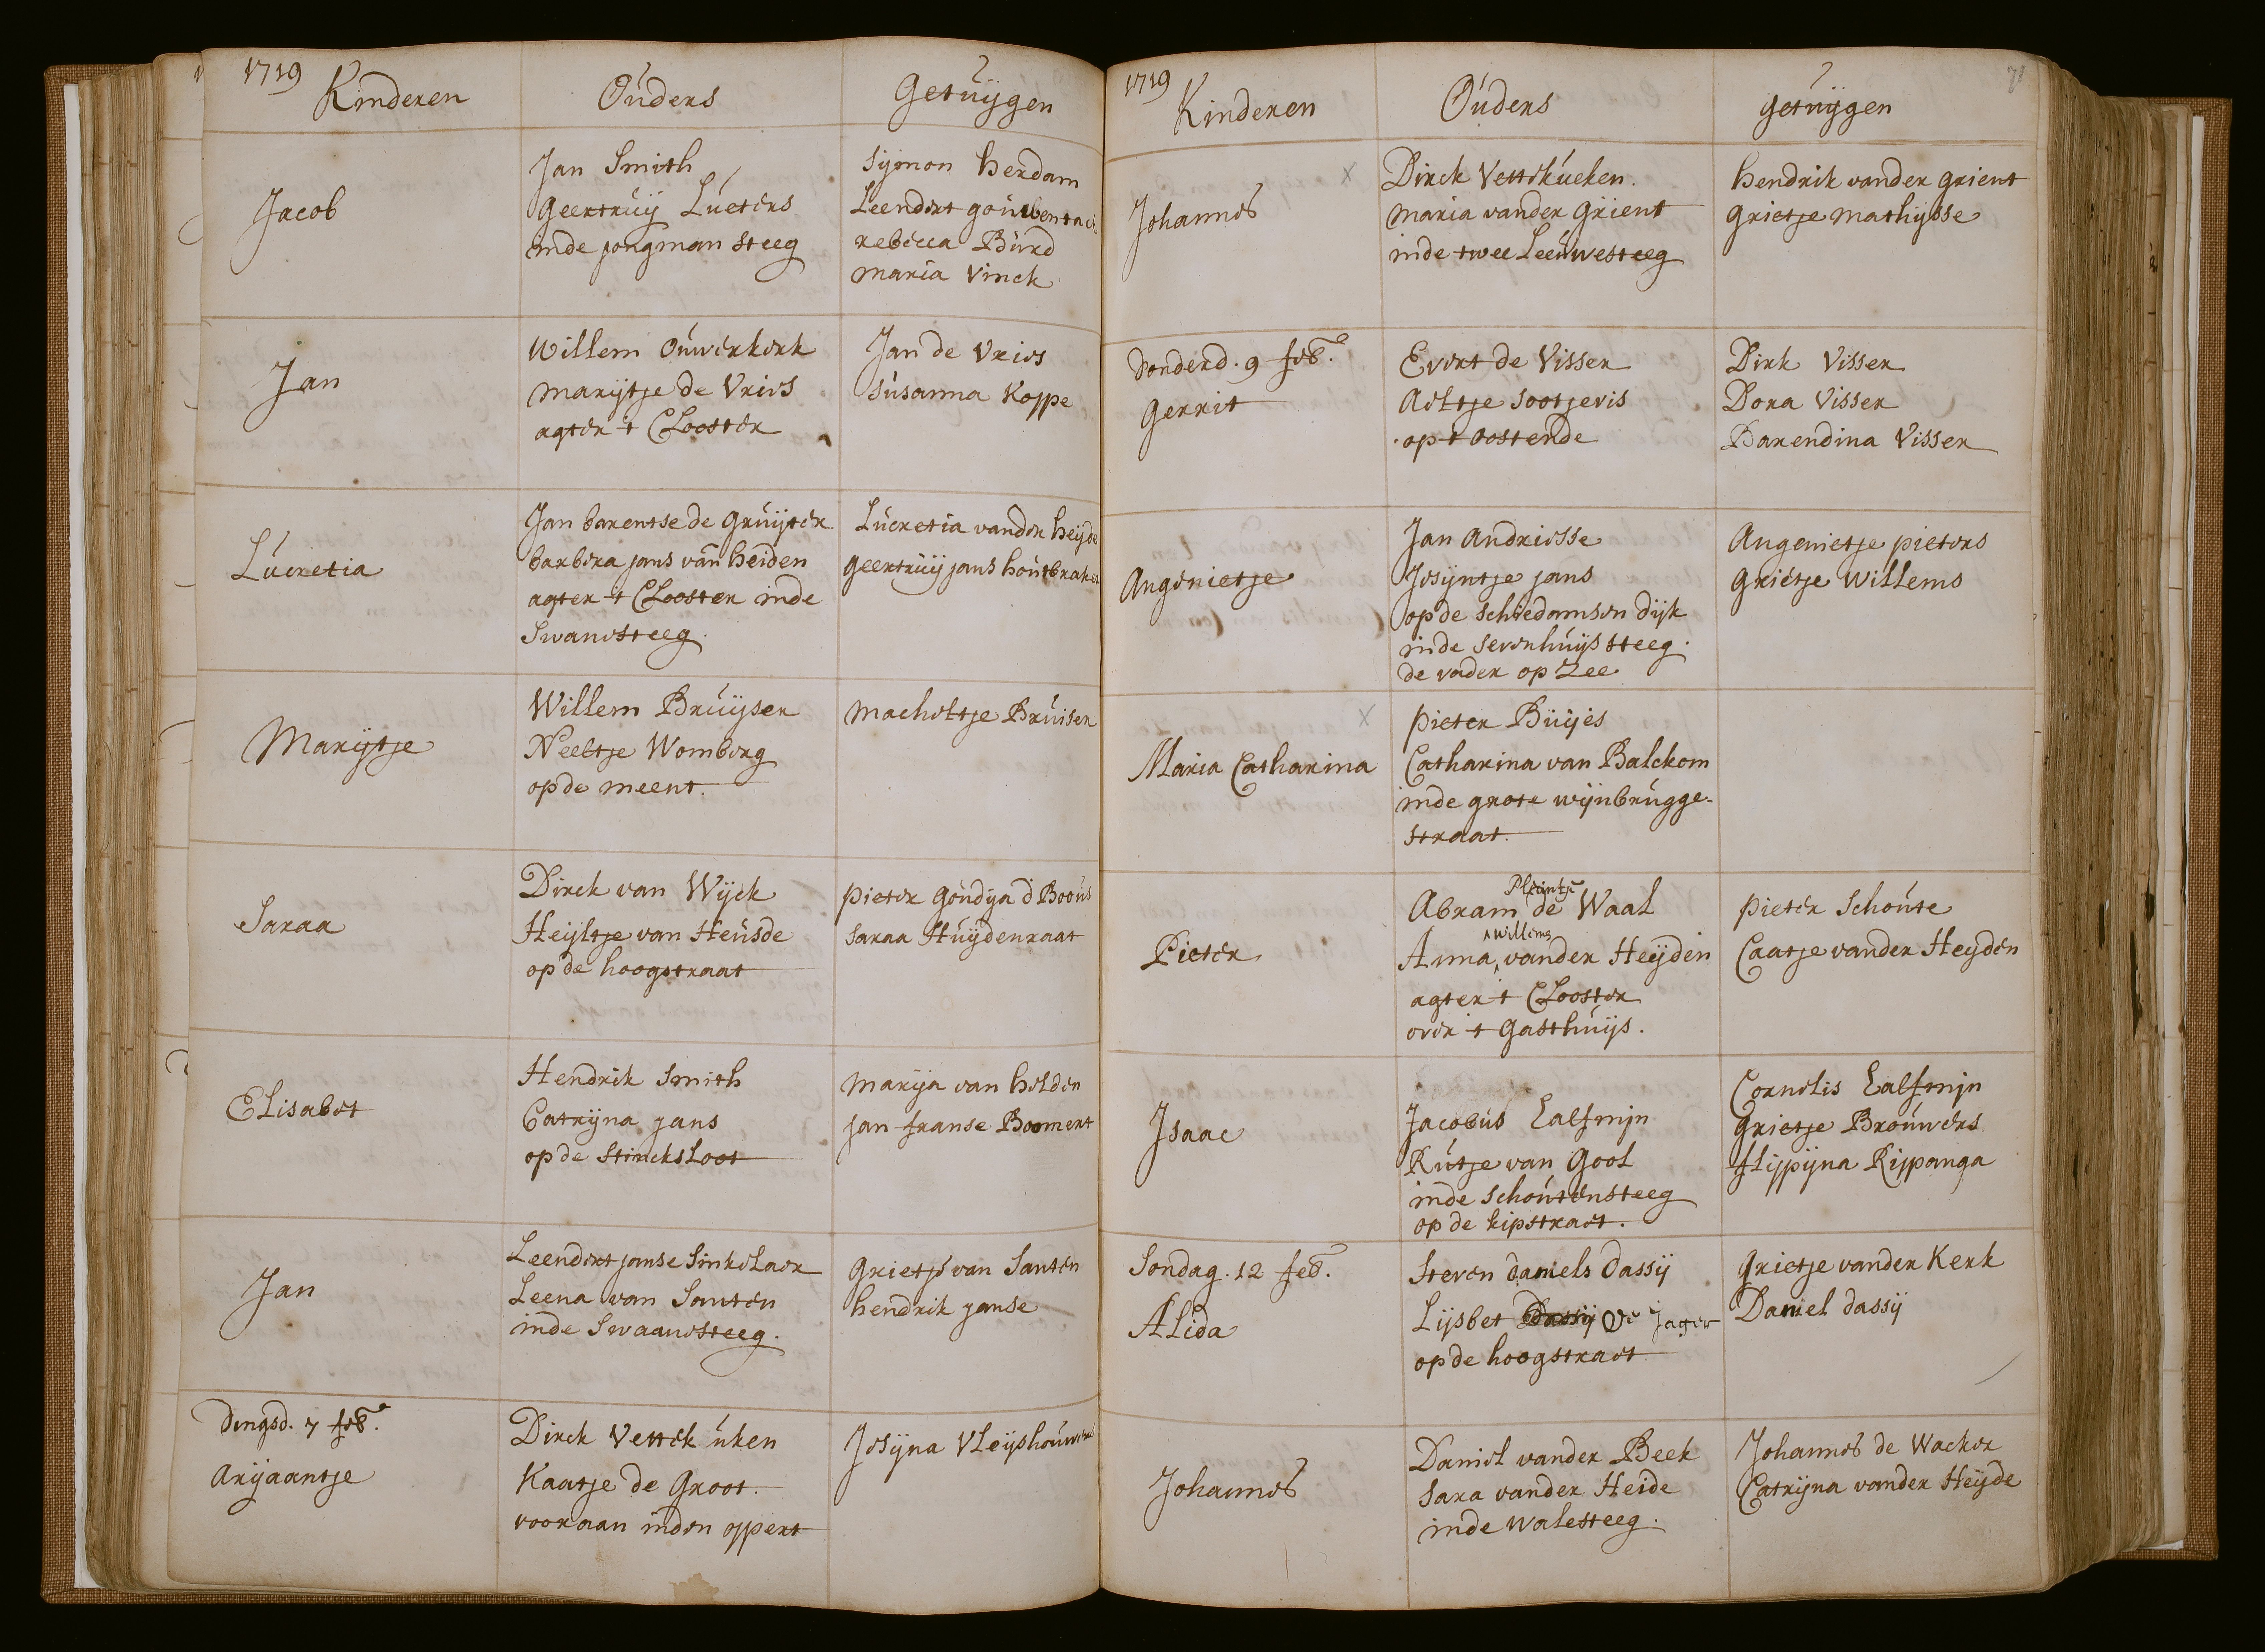 1719
Kinderen
Ouders
Getuijgen
Jacob
Jan Smith
Geertruij Lueters
inde jongman steeg
Sijmon herdam
Leendert
rebecca Burd
maria Vinck
Jan
Willem Ouwerkerk
marijtje de Vries
agter t Clooster
Jan de Vries
Susanna Koppe
Lucretia
Jan barentse de Gruijter
barbera jans van heiden
agter t Clooster inde
Swanesteeg.
Lucretia vander heijde
geertruij jans houtbraker
Marijtje
Willem Bruijser
Neeltje Womberg
opde meent.
macheltje Bruiser
Saraa
Dirck van Wijck
Heijltje van Heusde
op de hoogstraat
pieter Goudija d Boous
Saraa Huijdenraat
Elisabet
Hendrik Smith
Catrijna jans
opde Stincksloot
marija van helden
jan franse Boomert
Jan
Leendert janse Sinkelaer
Leena van Santen
inde Swaanesteeg.
Grietje van Santen
hendrik janse
dingsd. 7 feb.
Arijaantje
Dirck Vettekuken
Kaatje de Groot.
vooraan inden oppert
Josijna Vleijshouwers
1719
Kinderen
Ouders
getuijgen
71
Johannes
x
Dirck Vettekueken.
maria vander Grient
inde twee Leeuwesteeg
hendrik vander grient
Grietje mathijsse
Donderd. 9 feb.
Gerrit
Evert de Visser
Aeltje Sootjeris
op t oostende
Dirk Visser
Dora Visser
Barendina Visser
Angenietje
Jan Andriesse
Josijntje jans
op de Schiedamsen dijk
inde Sevenhuijs steeg.
de vader op Zee
Angenietje pieters
Grietje Willems
Maria Catharina
x
pieter Buijes
Catharina van Balckom
inde grote wijnbrugge-
straat.
Pieter
Pleuntje
Abram de Waal
willems
Anna vander Heijden
agter t Clooster
over t Gasthuijs.
pieter Schoute
Caatje vander Heyden
Isaac
Jacobus Ealfmijn
Rutje van Gool
inde schoutensteeg
op de kipstraet.
Cornelis Ealfmijn
Grietje Brouwers
flippijna Rippanga
Sondag. 12 feb.
Alida
Steven daniels dassij
Lijsbet Dassij de Jager
opde hoogstraet
Grietje vander Kerk
Daniel dassij
Johannes
Daniel vander Beek
Sara vander Heide
inde walesteeg.
Johannes de Wacker
Catrijna vander Heijde